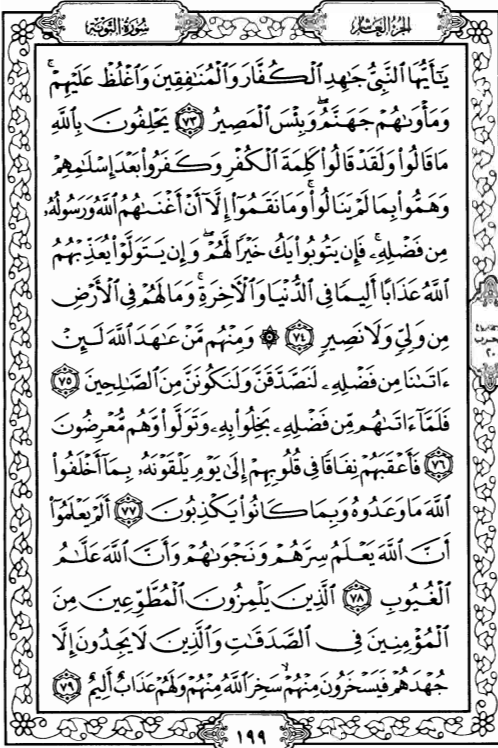 سُورَةُ التَّوْبَةِ
الجُزْءُ العَاشِرُ
يَـٰٓأَيُّهَا ٱلنَّبِىُّ جَـٰهِدِ ٱلْكُفَّارَ وَٱلْمُنَـٰفِقِينَ وَٱغْلُظْ عَلَيْهِمْ ۚ
وَمَأْوَىٰهُمْ جَهَنَّمُ ۖ وَبِئْسَ ٱلْمَصِيرُ ٧٣ يَحْلِفُونَ بِٱللَّهِ
مَا قَالُوا۟ وَلَقَدْ قَالُوا۟ كَلِمَةَ ٱلْكُفْرِ وَكَفَرُوا۟ بَعْدَ إِسْلَـٰمِهِمْ
وَهَمُّوا۟ بِمَا لَمْ يَنَالُوا۟ ۚ وَمَا نَقَمُوٓا۟ إِلَّآ أَنْ أَغْنَىٰهُمُ ٱللَّهُ وَرَسُولُهُۥ
مِن فَضْلِهِۦ ۚ فَإِن يَتُوبُوا۟ يَكُ خَيْرًا لَّهُمْ ۖ وَإِن يَتَوَلَّوْا۟ يُعَذِّبْهُمُ
ٱللَّهُ عَذَابًا أَلِيمًا فِى ٱلدُّنْيَا وَٱلْـَٔاخِرَةِ ۚ وَمَا لَهُمْ فِى ٱلْأَرْضِ
مِن وَلِىٍّ وَلَا نَصِيرٍ ٧٤ ۞ وَمِنْهُم مَّنْ عَـٰهَدَ ٱللَّهَ لَئِنْ
ءَاتَىٰنَا مِن فَضْلِهِۦ لَنَصَّدَّقَنَّ وَلَنَكُونَنَّ مِنَ ٱلصَّـٰلِحِينَ ٧٥
فَلَمَّآ ءَاتَىٰهُم مِّن فَضْلِهِۦ بَخِلُوا۟ بِهِۦ وَتَوَلَّوا۟ وَّهُم مُّعْرِضُونَ
٧٦ فَأَعْقَبَهُمْ نِفَاقًا فِى قُلُوبِهِمْ إِلَىٰ يَوْمِ يَلْقَوْنَهُۥ بِمَآ أَخْلَفُوا۟
ٱللَّهَ مَا وَعَدُوهُ وَبِمَا كَانُوا۟ يَكْذِبُونَ ٧٧ أَلَمْ يَعْلَمُوٓا۟
أَنَّ ٱللَّهَ يَعْلَمُ سِرَّهُمْ وَنَجْوَىٰهُمْ وَأَنَّ ٱللَّهَ عَلَّـٰمُ
ٱلْغُيُوبِ ٧٨ ٱلَّذِينَ يَلْمِزُونَ ٱلْمُطَّوِّعِينَ مِنَ
ٱلْمُؤْمِنِينَ فِى ٱلصَّدَقَـٰتِ وَٱلَّذِينَ لَا يَجِدُونَ إِلَّا
جُهْدَهُمْ فَيَسْخَرُونَ مِنْهُمْ ۙ سَخِرَ ٱللَّهُ مِنْهُمْ وَلَهُمْ عَذَابٌ أَلِيمٌ ٧٩
حزب
٢٠
١٩٩